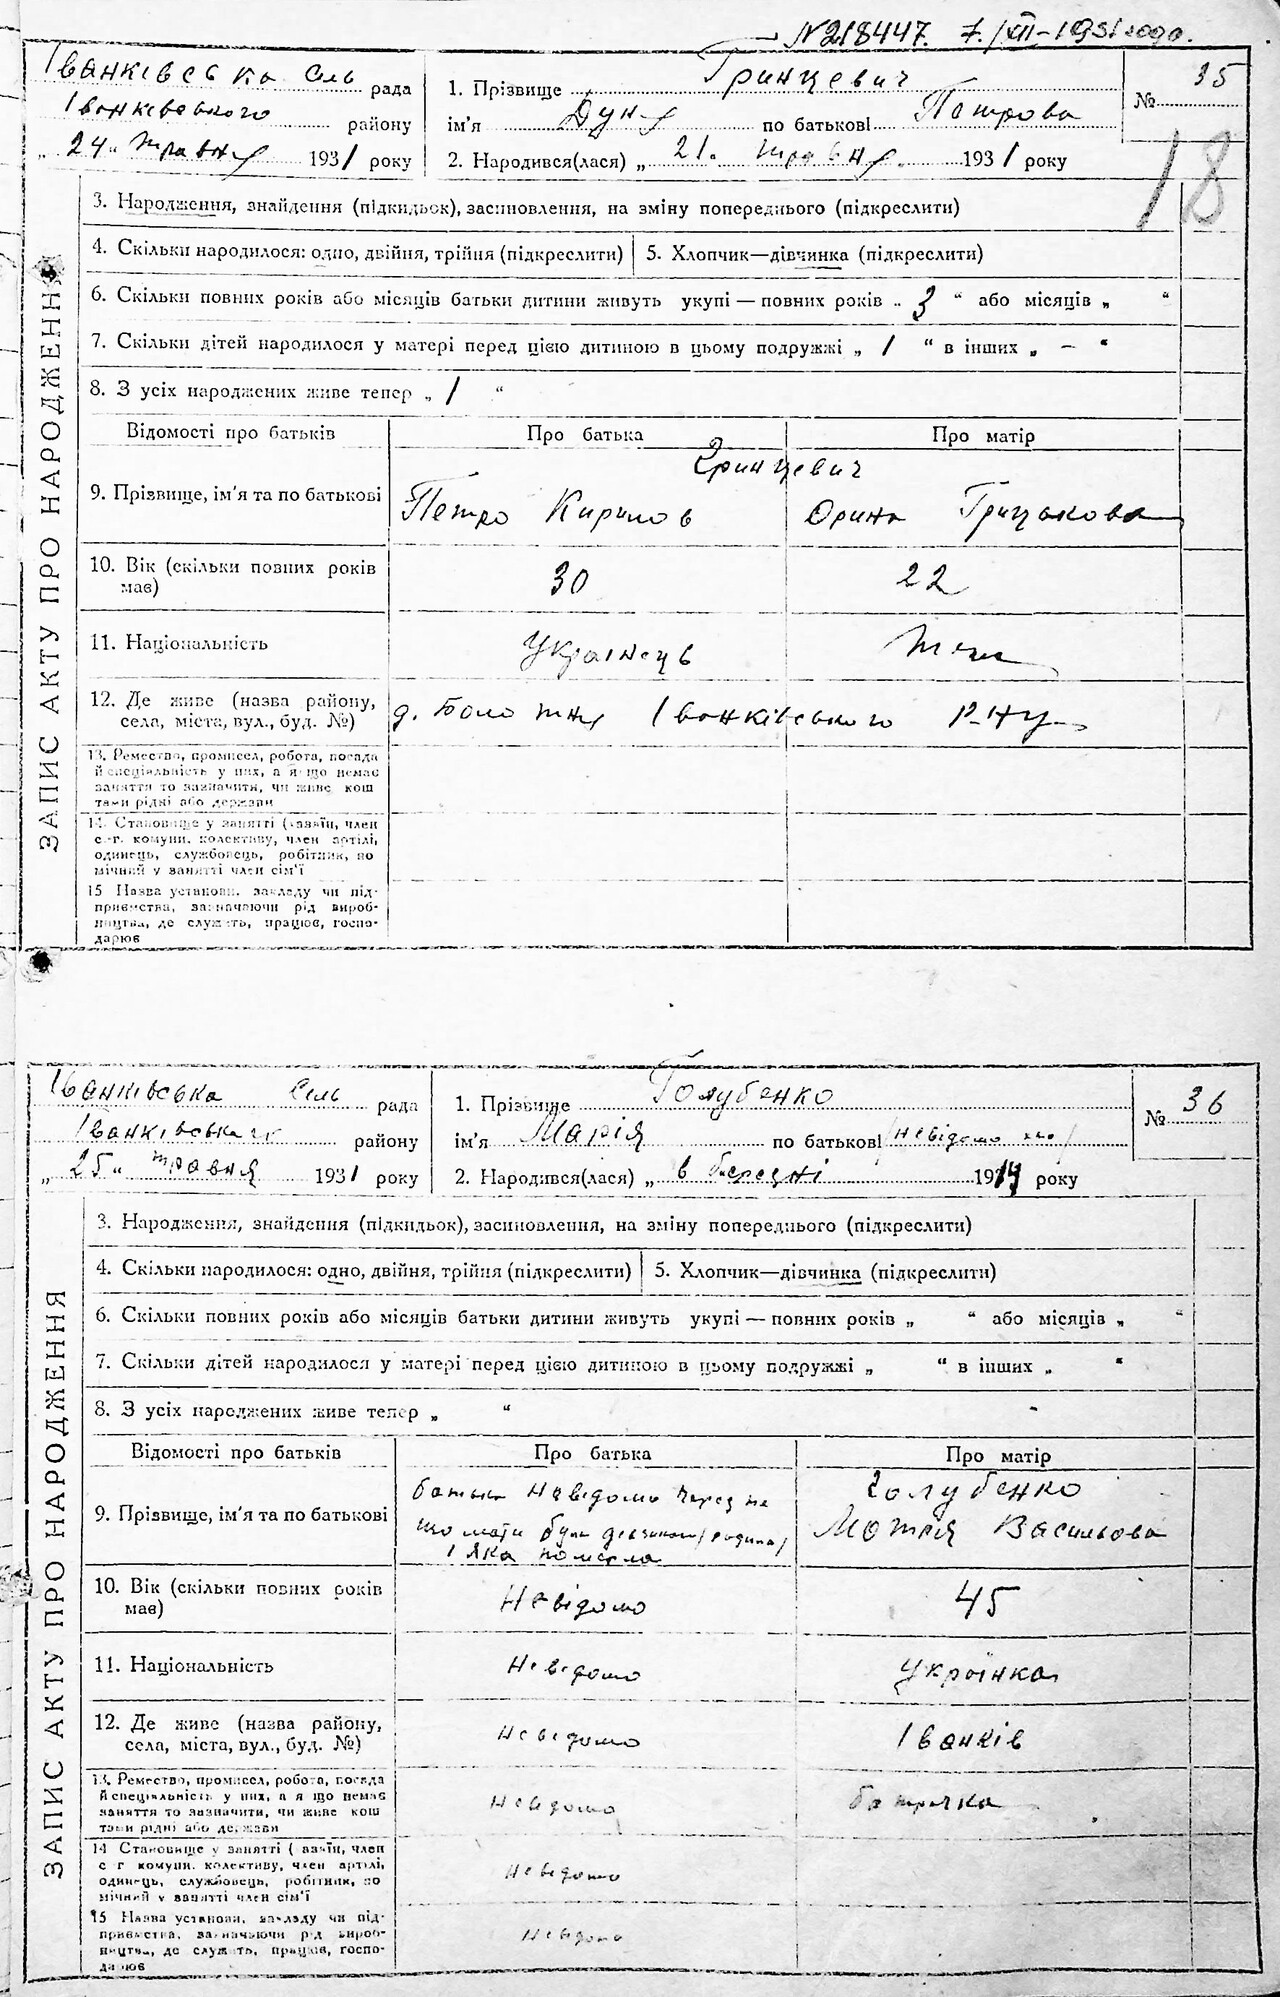 №218447. 7/XII-1931 року.
Іванківська Сель рада
Іванківського району
„ 24 " травня 1931 року
1. Прізвище Гринцевич
ім'я Дуня по батькові Петрова
2. Народився(лася) „ 21. травня. 1931 року
№ 35
18
ЗАПИС АКТУ ПРО НАРОДЖЕННЯ
3. Народження, знайдення (підкидьок), засиновлення, на зміну попереднього (підкреслити)
4. Скільки народилося: одно, двійня, трійня (підкреслити) 5. Хлопчик—дівчинка (підкреслити)
6. Скільки повних років або місяців батьки дитини живуть укупі — повних років „ 3 " або місяців „ "
7. Скільки дітей народилося у матері перед цією дитиною в цьому подружжі „ 1 " в інших „ - "
8. З усіх народжених живе тепер „ 1 "
Відомості про батьків Про батька Про матір
Гринцевич
9. Прізвище, ім'я та по батькові Петро Кирилов Орина Грицькова
10. Вік (скільки повних років має) 30 22
11. Національність Українець
12. Де живе (назва району, села, міста, вул., буд. №) д. Болотня Іванківського р-ну
13. Ремество, промисел, робота, посада
й спеціяльність у них, а якщо немає
заняття то зазначити, чи живе кош
тами рідні або держави
14. Становище у занятті (хазяїн, член
с.-г. комуни, колективу, член артілі,
одинець, службовець, робітник, по
мічний у занятті член сім'ї
15 Назва установи, закладу чи під-
приємства, зазначаючи рід вироб-
ництва, де служить, працює, госпо-
дарює
Іванківська Сель рада
Іванківського району
„ 25 " травня 1931 року
1. Прізвище Голубенко
ім'я Марія по батькові /невідомо
2. Народився(лася) „ в березні 1914 року
№ 36
ЗАПИС АКТУ ПРО НАРОДЖЕННЯ
3. Народження, знайдення (підкидьок), засиновлення, на зміну попереднього (підкреслити)
4. Скільки народилося: одно, двійня, трійня (підкреслити) 5. Хлопчик—дівчинка (підкреслити)
6. Скільки повних років або місяців батьки дитини живуть укупі — повних років „ " або місяців „ "
7. Скільки дітей народилося у матері перед цією дитиною в цьому подружжі „ " в інших „ "
8. З усіх народжених живе тепер „ "
Відомості про батьків Про батька Про матір
батька невідомо через те
що мати була
і яка померла
Голубенко
9. Прізвище, ім'я та по батькові Мотря Васильова
10. Вік (скільки повних років має) Невідомо 45
11. Національність Невідомо Українка
12. Де живе (назва району, села, міста, вул., буд. №) Невідомо Іванків
13. Ремество, промисел, робота, посада
й спеціяльність у них, а якщо немає
заняття то зазначити, чи живе кош
тами рідні або держави
Невідомо батрачка
14 Становище у занятті (хазяїн, член
с г комуни, колективу, член артілі,
одинець, службовець, робітник, по
мічний у занятті член сім'ї
Невідомо
15 Назва установи, закладу чи під-
приємства, зазначаючи рід вироб-
ництва, де служить, працює, госпо-
дарює
Невідомо